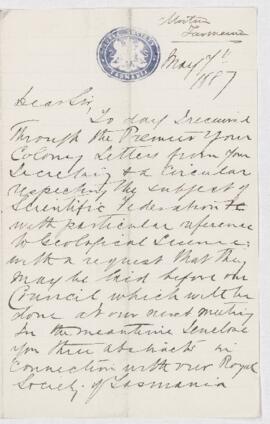 Morton
Tasmania
ROYAL SOCIETY
TASMANIA
May 7th
1887
Dear Sir,
To day I received
through the Premier your
Colony Letters from your
Secretary & a Circular
respecting the subject of
Scientific Federation &c
with particular reference
to Geological Science,
with a request that they
may be laid before our
Council which will be
done at our next meeting
In the meantime I enclose
you three abstracts in
Connection with our Royal
Society of Tasmania